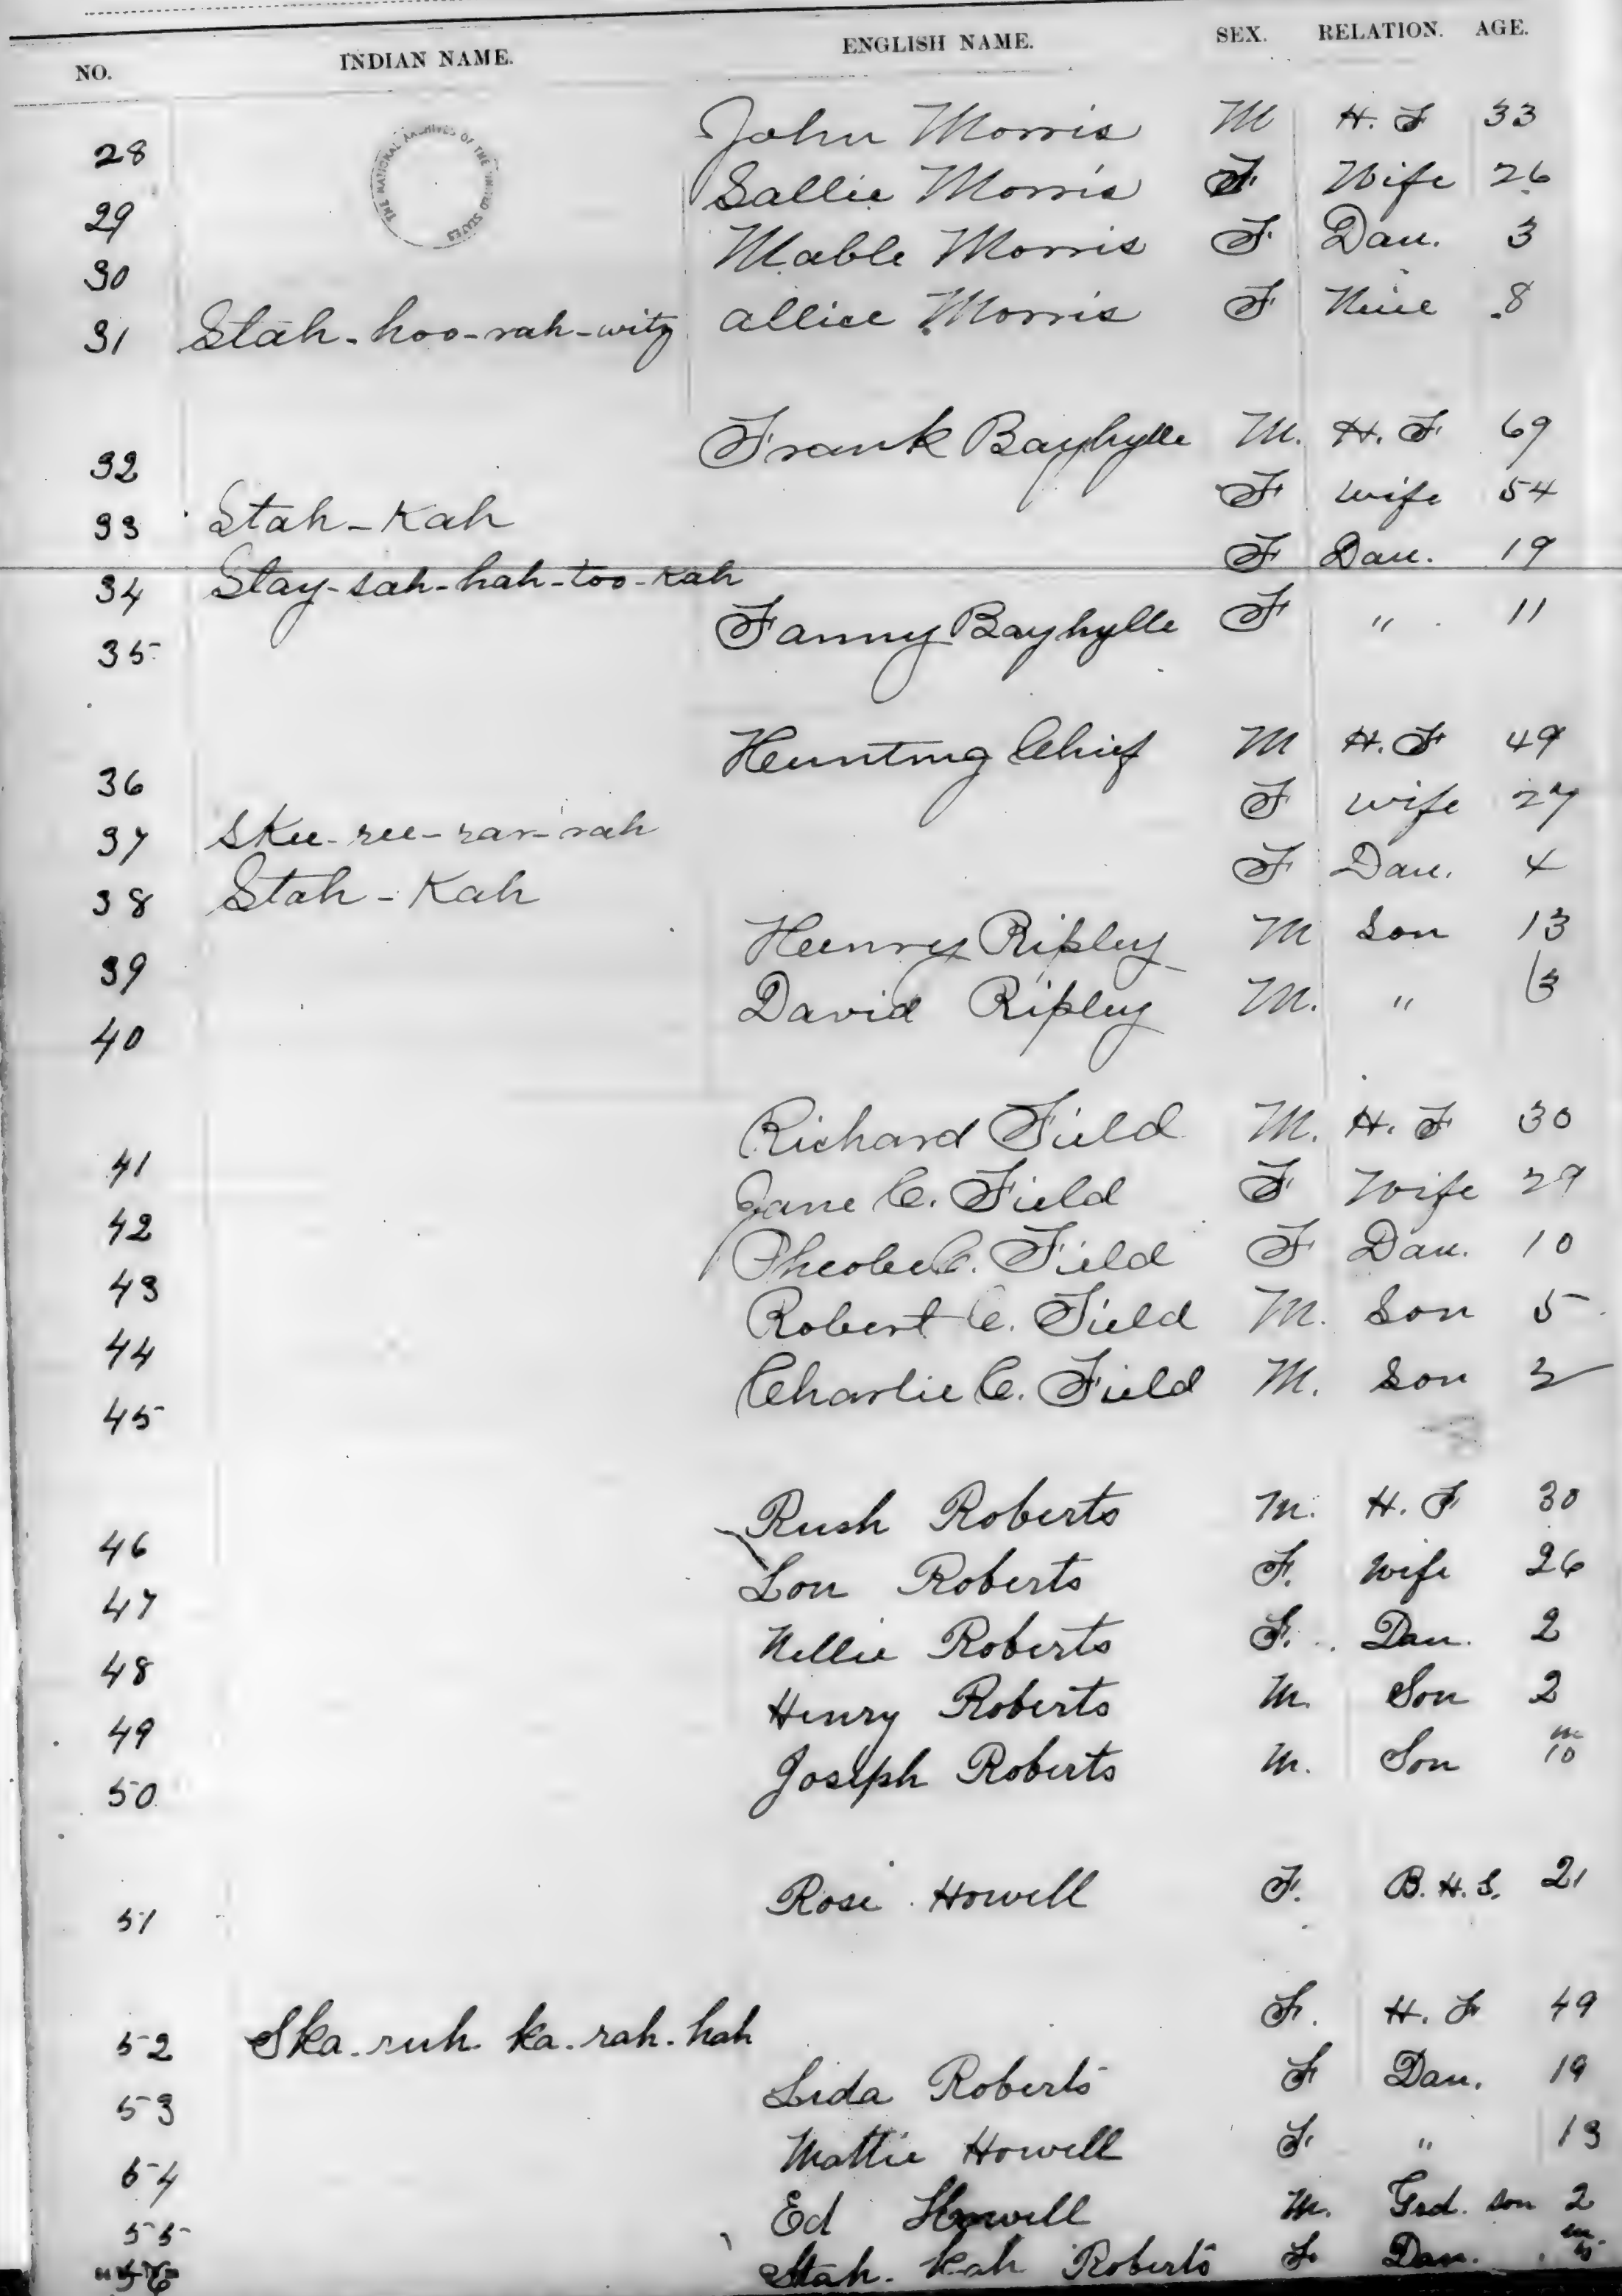 NO. INDIAN NAME. ENGLISH NAME. SEX. RELATION. AGE.
THE NATIONAL ARCHIVES OF THE UNITED STATES
28 John Morris M H. F 33
29 Sallie Morris F Wife 26
30 Mable Morris F Dau. 3
31 Stah-hoo-rah-witz allice Morris F Niece 8
32 Frank Bayhylle M. H. F 69
33 Stah-Kah F wife 54
34 Stay-sah-hah-too-kah F Dau. 19
35 Fanny Bayhylle F " 11
36 Hunting Chief M H. F 49
37 SKee-ree-rar-rah F wife 27
38 Stah-Kah F Dau. 4
39 Henry Ripley M Son 13
40 David Ripley M. "
41 Richard Field M. H. F 30
42 Jane C. Field F Wife 29
43 Pheobe C. Field F Dau. 10
44 Robert C. Field M. Son 5
45 Charlie C. Field M. Son
46 Rush Roberts M. H. F 30
47 Lou Roberts F. Wife 26
48 Nellie Roberts F. Dau. 2
49 Henry Roberts M. Son 2
50 Joseph Roberts M. Son m 10
51 Rose Howell F. B. H. S. 21
52 Ska-ruh-ka-rah-hah F. H. F 49
53 Lida Roberts F Dau. 19
54 Mattie Howell F. " 13
55 Ed Howell M. Grd. son 2
56 Stah-Kah Roberts F Dau. m